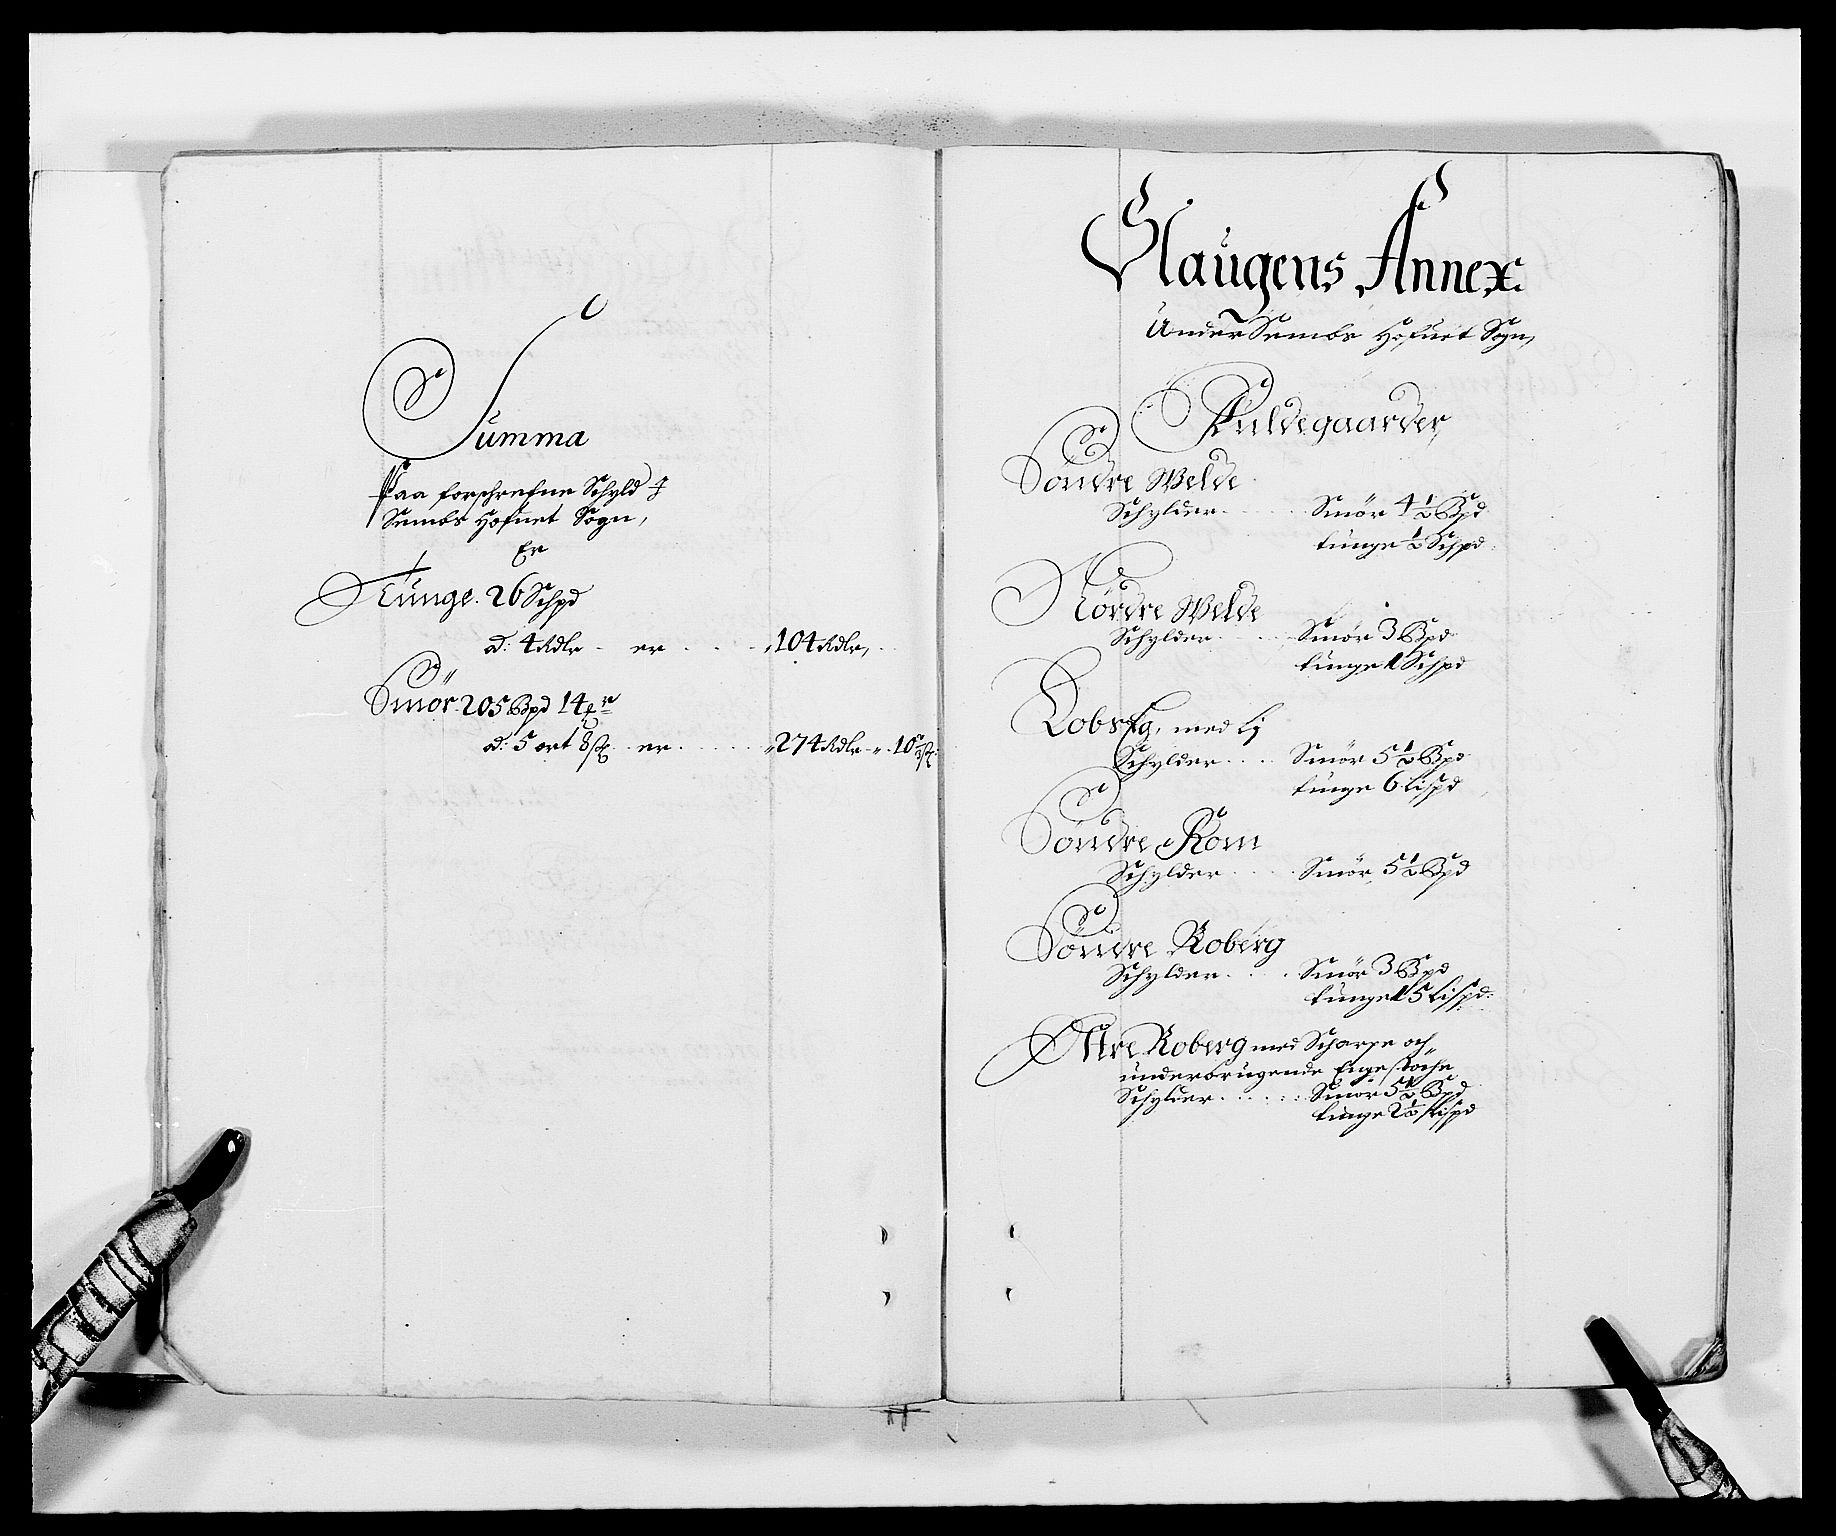 Summa
Paa forschrefne Schyld J
Sembs Hofuet Sogn,
Er
Tunge. 26 Schpd
ad: 4 Rdlr - er . . . 104 Rdlr,
Smör 205 Bpd 14
ad: 5 ort 8 s. er . . . 274 Rdlr „ 10
Slaugens Annex.
Under Sembs Hofuet Sogn,
Fuldegaarder,
Söndre Welde
Schylder . . . Smör 4 1/2 Bpd
tunge 1/2 Schpd
Nordre Welde
Schylder . . . Smör 3 Bpd
tunge 1 Schpd
med
Schylder . . . Smör 5 1/2 Bpd
tunge 6 Lispd
Söndre Rom
Schylder . . . Smör 5 1/2 Bpd
Söndre Roberg
Schylder . . . Smör 3 Bpd
tunge 15 Lispd:
Østre Roberg med Scharpe och
underbrugende
Schylder . . . Smör 5 1/2 Bpd
tunge 2 1/2 Lispd